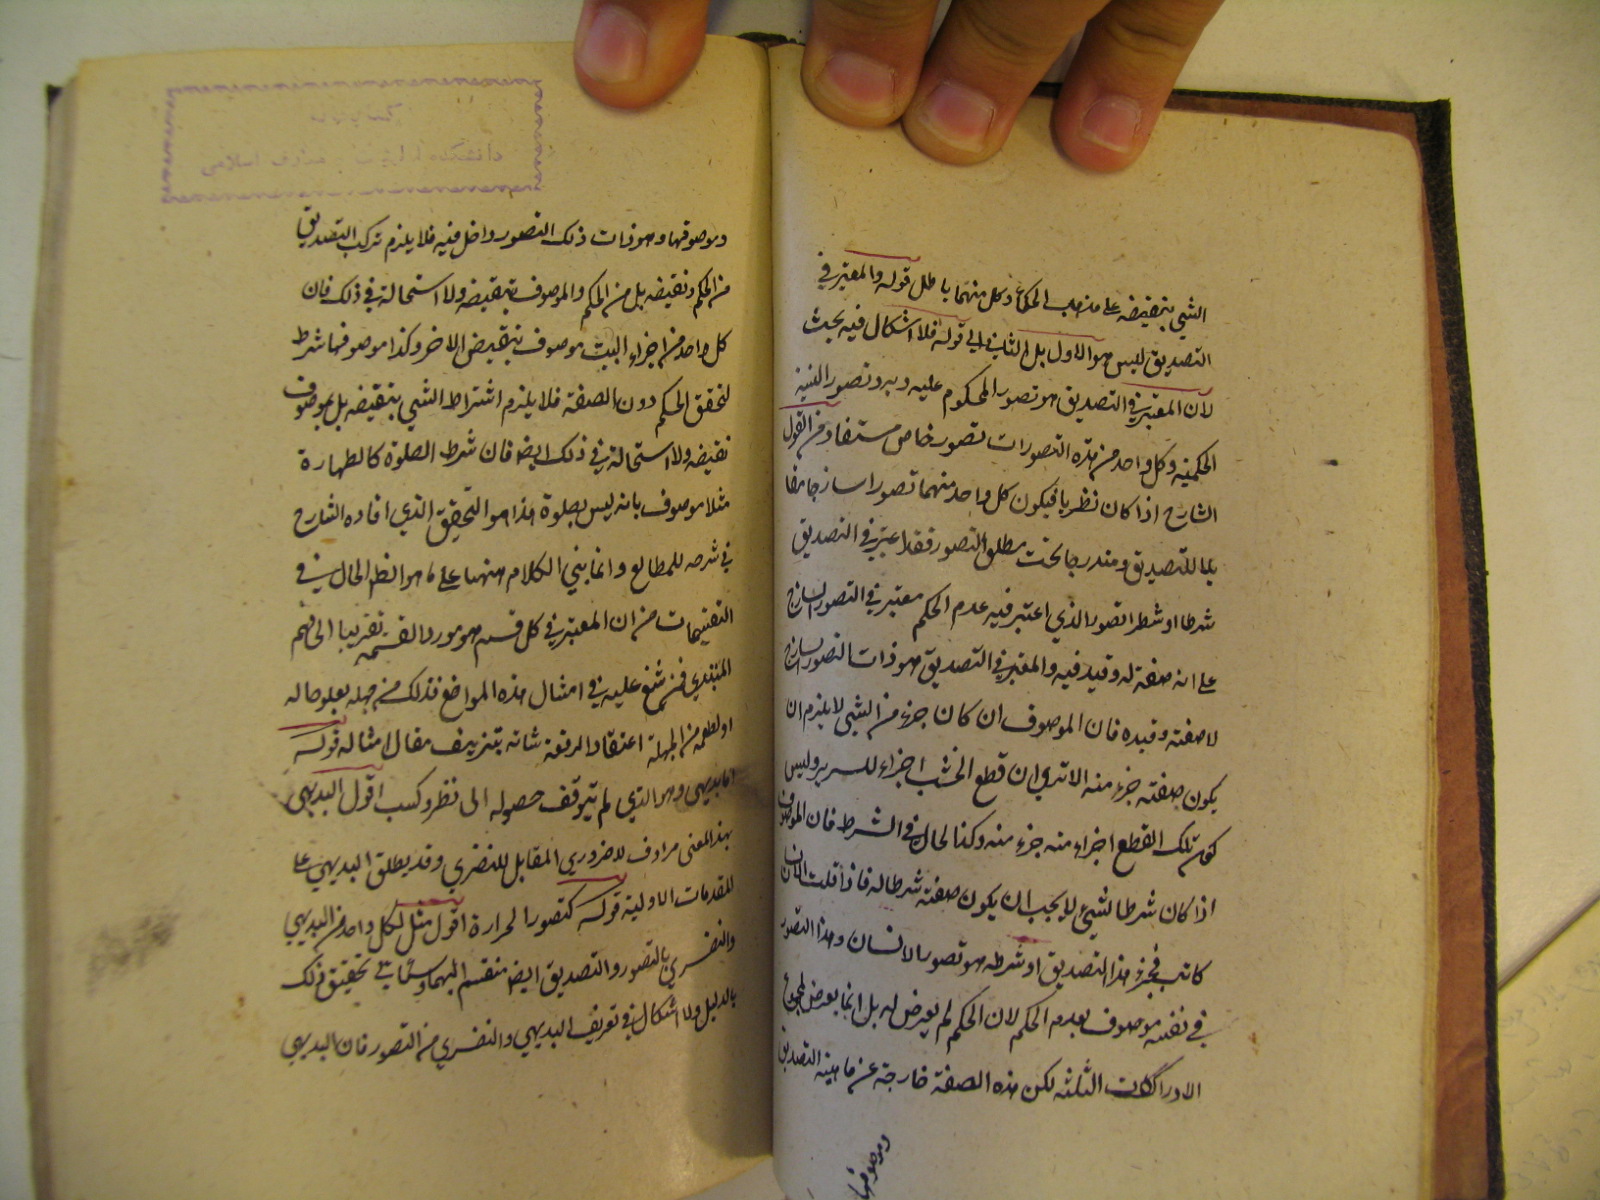 الشي بنقيضه على مذهب الحكماء وكل منهما باطل قوله والمعتبر في
التصديق ليس هو الاول بل الثاني الى قوله فلا اشكال فيه بحث
لان المعتبر في التصديق هو تصور المحكوم عليه وبه وتصور النسبة
الحكمية وكل واحد من هذه التصورات تصور خاص مستفاد من القول
الشارح اذا كان نظريا فيكون كل واحد منهما تصورا ساذجا مقا
بلا للتصديق ومندرجا تحت مطلق التصور فقد اعتبر في التصديق
شرطا او شطرا تصور الذي اعتبر فيه عدم الحكم معتبر في التصور الساذج
على انه صفة له وقيد فيه والمعتبر في التصديق هو ذات التصور الساذج
لا صفته وقيده فان الموصوف ان كان جزء من الشي لا يلزم ان
يكون صفته جزء منه الا ترى ان قطع الخشب اجزاء للسرير وليس
كون تلك القطع اجزاء منه جزء منه وكذا الحال في الشرط فان الموصوف
اذا كان شرطا لشيء لا يجب ان يكون صفته شرطا له فاذا قلت الانسان
كاتب فجزء هذا التصديق او شرطه هو تصور الانسان وهذا التصور
في نفسه موصوف بعدم الحكم لان الحكم لم يعرض له بل انما يعرض لمجموع
الادراكات الثلثه لكن هذه الصفة خارجة عن ماهية التصديق
وموصوفها
وموصوفها وهو ذات ذلك التصور داخل فيه فلا يلزم تركب التصديق
من الحكم ونقيضه بل من الحكم والموصوف بنقيضه ولا استحالة في ذلك فان
كل واحد من اجزاء البيت موصوف بنقيض الاخر وكذا موصوفها شرط
لتحقق الحكم دون الصفة فلا يلزم اشتراط الشي بنقيضه بل بموصوف
نقيضه ولا استحالة في ذلك ايضا فان شرط الصلوة كالطهارة
مثلا موصوف بانه ليس بصلوة هذا هو التحقيق الذي افاده الشارح
في شرحه للمطالع وانما بني الكلام ههنا على ما هو الظ الحال في
التقسيمات من ان المعتبر في كل قسم هو مورد القسمة تقريبا الى فهم
المبتدي فمن شنع عليه في امثال هذه المواضع فذلك من جهله بعلو حاله
او لطمع من الجهلة اعتقاد الرفعة شانه بتزييف مقال امثاله قوله
اما بديهي وهو الذي لم يتوقف حصوله الى نظر وكسب اقول البديهي
بهذا المعنى مرادف للضروري المقابل للنظري وقد يطلق البديهي على
المقدمات الاولية قوله كتصور الحرارة اقول مثل لكل واحد من البديهي
والنظري بالتصور والتصديق ايضا منقسم اليهما وسياتي تحقيق ذلك
بالدليل ولا اشكال في تعريف البديهي والنظري من التصور فان البديهي